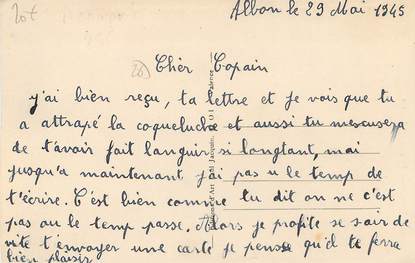 20t
Albon le 29 Mai 1945
(26) Chèr Copain
j'ai bien reçu, ta lettre et je vois que tu
a attrapé la coqueluche et aussi tu mescusera
de t'avoir fait languir si longtant, mai
jusqu'a maintenant j'ai pas u le temp de
t'écrire. C'est bien comme tu dit on ne c'est
pas ou le temp passe. Alors je profite se soir de
vite t'envoyer une carte je pense qu'el te ferra
bien plaisir.